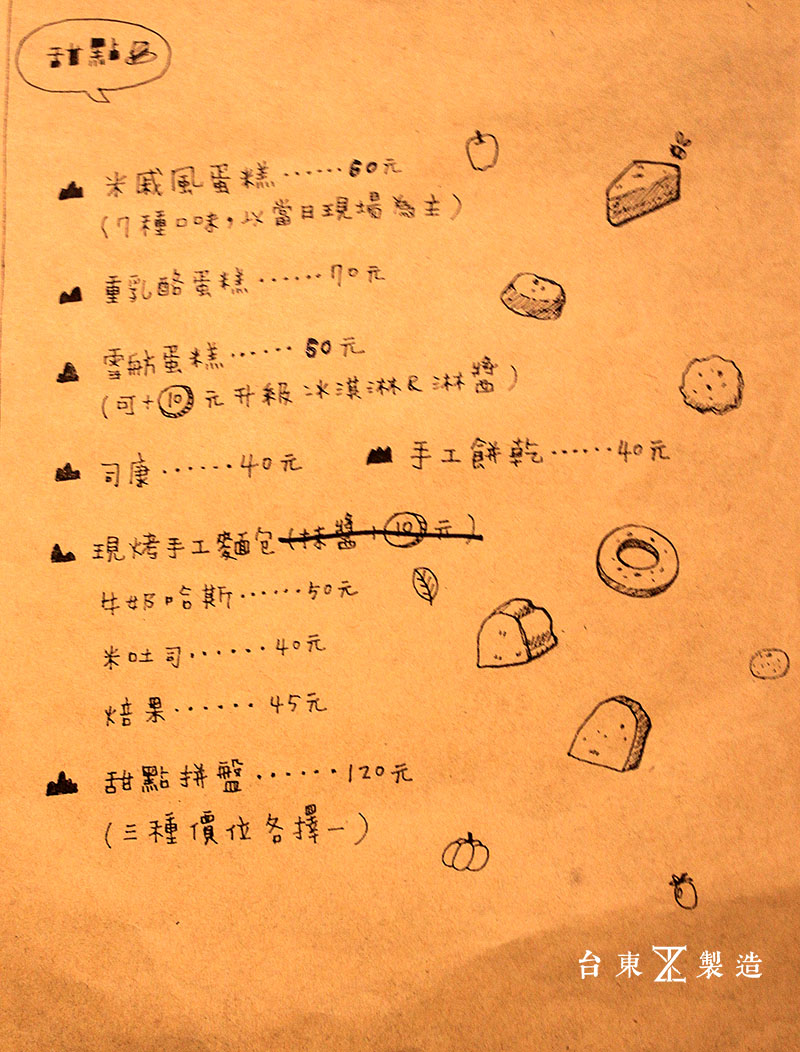 甜點
米戚風蛋糕……60元
(7種口味,以當日現場為主)
重乳酪蛋糕……70元
雪舫蛋糕……50元
(可+10元升級冰淇淋&淋醬)
司康……40元
手工餅乾……40元
現烤手工麵包(抹醬+10元)
牛奶哈斯……50元
米吐司……40元
焙果……45元
甜點拼盤……120元
(三種價位各擇一)
台東製造